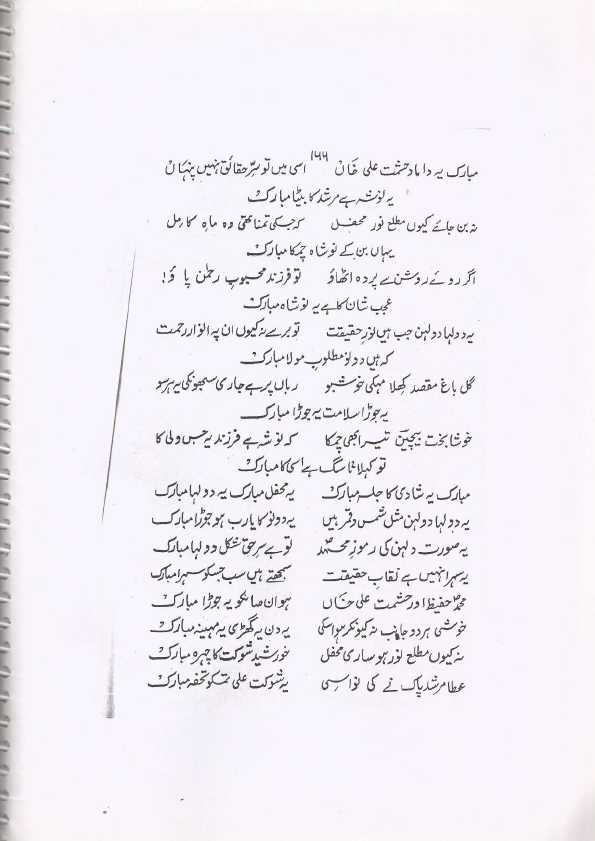 ۱۶۶
مبارک یہ داماد حشمت علی خاں اسی میں تو سِرِّ حقائق نہیں پنہاں
یہ نوشہ ہے مرشد کا بیٹا مبارک
نہ بن جائے کیوں مطلع نور محفل کہ جسکی تمنا تھی وہ ماہِ کامل
یہاں بن کے نوشاہ چمکا مبارک
اگر روئے روشن سے پردہ اٹھاؤ تو فرزند محبوبِ رحمٰن پاؤ!
عجب شان کا ہے یہ نوشاہ مبارک
یہ دولہا دولہن جب ہیں نورِ حقیقت تو برسے نہ کیوں ان پہ انوار رحمت
کہ ہیں دونو مطلوبِ مولا مبارک
گل باغ مقصد کھلا مہکی خوشبو زباں پر ہے جاری سبھونکی یہ ہر سو
یہ جوڑا سلامت یہ جوڑا مبارک
خوشا بخت بیچینؔ تیرا بھی چمکا کہ نوشہ ہے فرزند یہ جس ولی کا
تو کہلاتا سگ ہے اسی کا مبارک
مبارک یہ شادی کا جلسہ مبارک یہ محفل مبارک یہ دولہا مبارک
یہ دولہا دولہن مثل شمس و قمر ہیں یہ دونو کا یارب ہو جوڑا مبارک
یہ صورت دلہن کی رموزِ محمدؐ تو ہے سرِ حق شکل دولہا مبارک
یہ سہرا نہیں ہے نقابِ حقیقت سمجھتے ہیں سب جسکو سہرا مبارک
محمد حفیظ اور حشمت علی خاں ہو ان صاحبکو یہ جوڑا مبارک
خوشی ہر دو جانب نہ کیونکر ہو اسکی یہ دن یہ گھڑی یہ مہینہ مبارک
نہ کیوں مطلع نور ہو ساری محفل خورشید شوکت کا چہرہ مبارک
عطا مرشد پاک نے کی نواسی یہ شوکت علی تمکو تحفہ مبارک